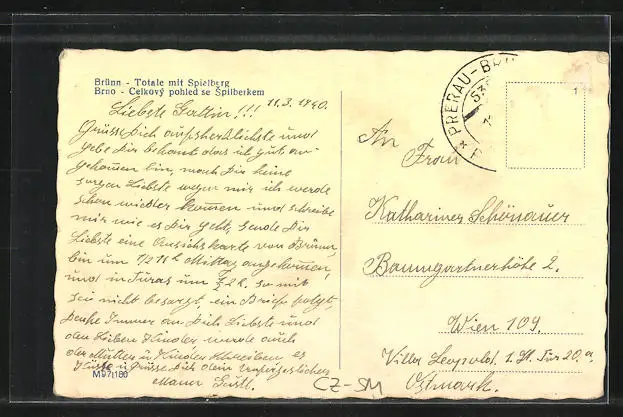 Brünn - Totale mit Spielberg
Brno - Celkový pohled se Špilberkem
11.3.1940.
Liebste Gattin!!!
Grüsse Dich aufsherzlichste und
gebe Dir bekant das ich gut an-
gekommen bin, mach Dir keine
sorgen Liebste wegen mir ich werde
schon wiedter kommen und schreibe
mir wie es Dir geht, sende Dir
Liebste eine Ansichtskarte von Brünn,
bin um 1/2 11h Mittag angekommen,
und in Turas um 2h. so mit
sei nicht besorgt, ein Brief folgt,
denke Immer an Dich Liebste und
den Lieben Kinder werde auch
der Mutter u Kinder schreiben es
Küsst u Grüsse Dich dein unvergesslicher
Mann
M 97/180
PRERAU - BR
An
Frau
Katharina Schönauer
Baumgartnerhöhe 2.
Wien 109.
Villa Leopold. 1. St. Tür 20.a
Ostmark.
CZ-SM
1